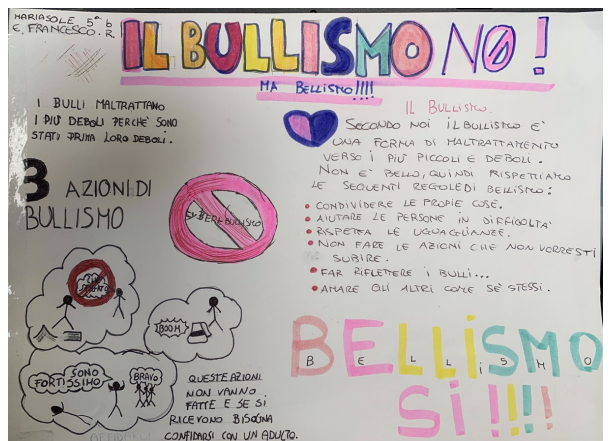 MARIASOLE 5ª b
E FRANCESCO. R.
IL BULLISMO NO!
MA BELLISMO!!!!
I BULLI MALTRATTANO
I PIÙ DEBOLI PERCHÈ SONO
STATI PRIMA LORO DEBOLI.
3 AZIONI DI
BULLISMO
CYBERBULLISMO
BOOM
SONO
FORTISSIMO
BRAVO
QUESTE AZIONI
NON VANNO
FATTE E SE SI
RICEVONO BISOGNA
CONFIDARSI CON UN ADULTO.
IL BULLISMO.
SECONDO NOI IL BULLISMO E'
UNA FORMA DI MALTRATTAMENTO
VERSO I PIÙ PICCOLI E DEBOLI.
NON E' BELLO, QUINDI RISPETTIAMO
LE SEGUENTI REGOLE DI BELLISMO:
• CONDIVIDERE LE PROPIE COSE.
• AIUTARE LE PERSONE IN DIFFICOLTA'
• RISPETTA LE UGUAGLIANZE.
• NON FARE LE AZIONI CHE NON VORRESTI
SUBIRE.
• FAR RIFLETTERE I BULLI...
• AMARE GLI ALTRI COME SÈ STESSI.
BELLISMO
BELLISMO
SI!!!!